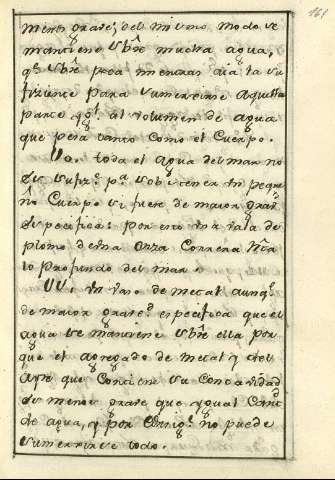 menos grave; del mismo modo se
mantiene sbrē mucha agua,
qᵉ sbrē poca mientras aia la su
ficiente para sumergirse aquella
parte qᵉ al volumen de agua
que pesa tanto como el Cuerpo.
Vo. toda el Agua del mar no
es sufizᵗᵉ pᵃ sobstener un peque
ño Cuerpo si fuere de maior gravᵈ
especifica: por eso una vala de
plomo de una onza correra hta
lo profundo del mar.
VVo un vaso de metal aunqᵉ
de maior gravᵈ especifica que el
agua se mantiene sbrē ella por
que el agregado de metal y del
Ayre que contiene su concavidad
es menos grave que ygual Cantᵈ
de agua, y por consigᵗᵉ no puede
sumergirse todo.